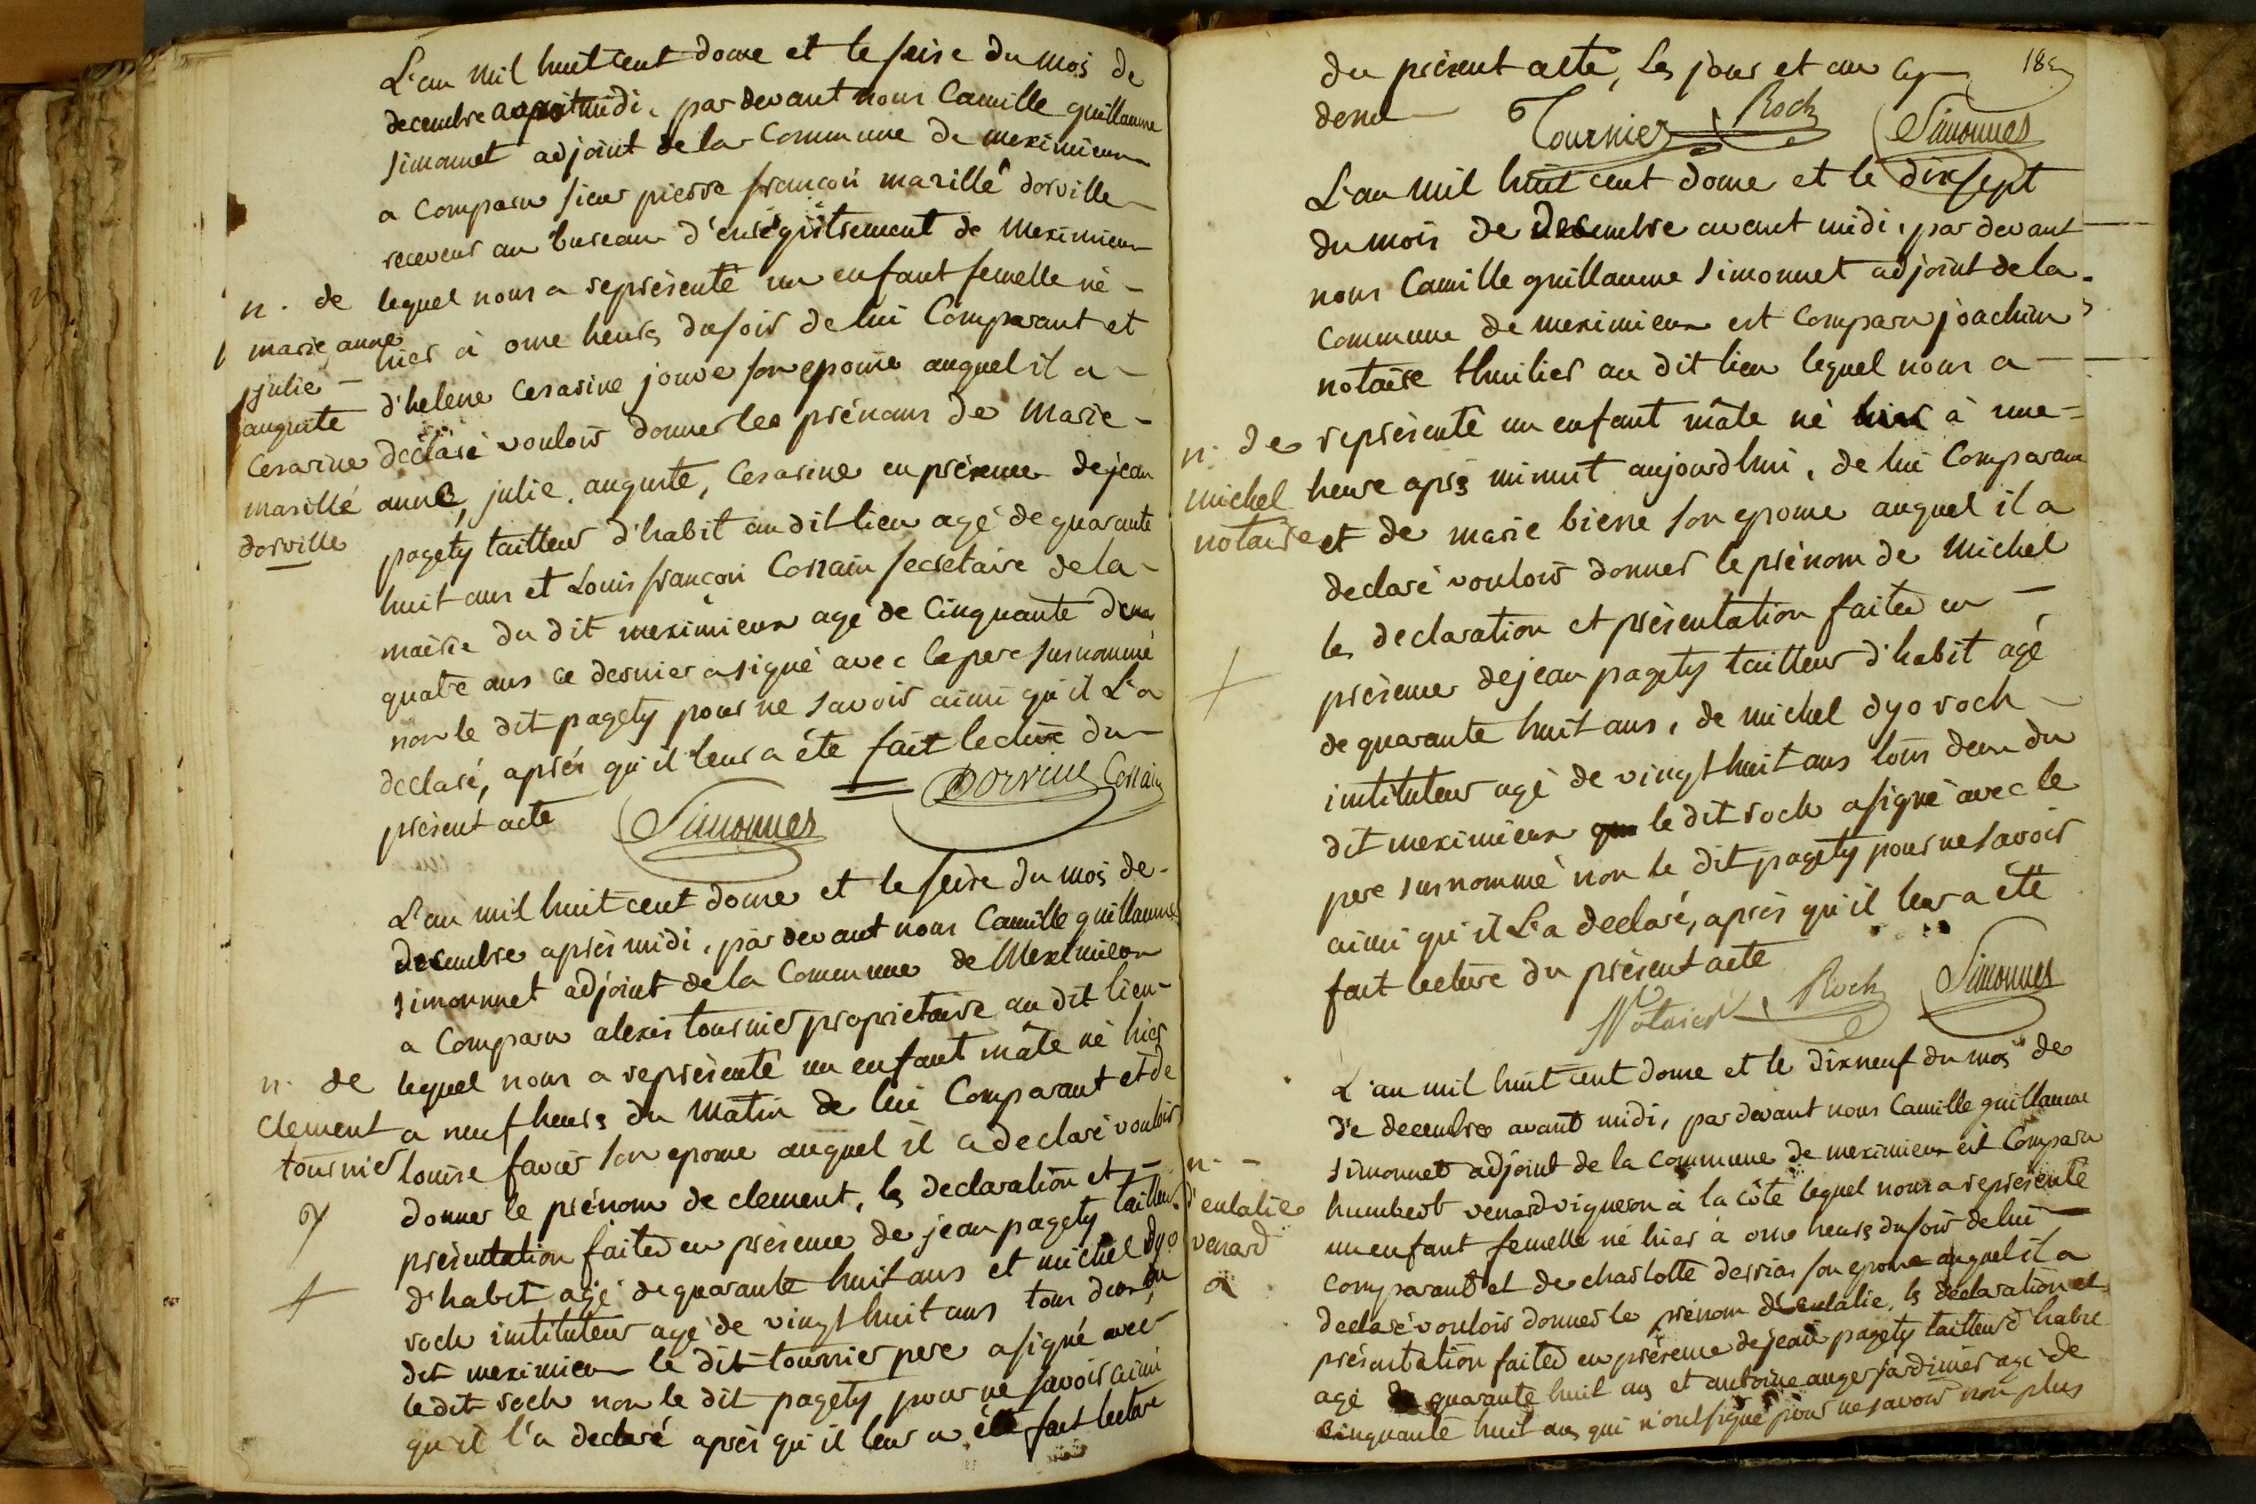 L'an mil huit cent douze et le seize du mois de
decembre après midi, par devant nous Camille guillaume
simonnet adjoint de la Commune de meximieux
a Comparu sieur pierre françois marillé dorville
receveur au bureau d'enrégistrement de Meximieux
n. de
lequel nous a représenté un enfant femelle né
marie anne
hier à onze heures du soir de lui Comparant et
julie
d'helene Cesarine jouve son epouse auquel il a
auguste
déclaré vouloir donner les prénoms de Marie
Cesarine
anne, julie, auguste, Cesarine en présence de jean
marillé
pagety tailleur d'habit au dit lieu agé de quarante
dorville
huit ans et Louis françois Corrain secretaire de la
mairie du dit meximieux agé de Cinquante
quatre ans ce dernier a signé avec le pere surnommé
non le dit pagety pour ne savoir ainsi qu'il L'a
declaré, après qu'il leur a été fait lecture du
présent acte
Simonnet Dorville Corrain
L'an mil huit cent douze et le seize du mois de
decembre après midi, par devant nous Camille guillaume
simonnet adjoint de la Commune de Meximieux
a Comparu alexis tournier proprietaire au dit lieu
n. de
lequel nous a représenté un enfant mâle né hier
Clement
a neuf heures du Matin de lui Comparant et de
tournier
louise favier son epouse auquel il a declaré vouloir
donner le prénom de clement, les declaration et
présentation faites en présence de jean pagety tailleur
d'habit agé de quarante huit ans et michel dyo
roch instituteur agé de vingt huit ans tous deux du
dit meximieux le dit tournier pere a signé avec
le dit roch non le dit pagety pour ne savoir ainsi
qu'il l'a declaré après qu'il leur a été fait lecture
du présent acte, les jour et an
dessus
Tournier Roch Simonnet
L'an mil huit cent douze et le dix sept
du mois de decembre avant midi, par devant
nous Camille guillaume simonnet adjoint de la
Commune de meximieux est Comparu joachim
notaire thuilier au dit lieu lequel nous a
n. de
représenté un enfant mâle né hier à une
michel
heure après minuit aujourdhui, de lui Comparant
notaire
et de marie biene son epouse auquel il a
declaré vouloir donner le prénom de Michel
les declaration et présentation faites en
présence de jean pagety tailleur d'habit agé
de quarante huit ans, de michel dyo roch
instituteur agé de vingt huit ans tous deux du
dit meximieux le dit roch a signé avec le
pere surnommé non le dit pagety pour ne savoir
ainsi qu'il L'a declaré, après qu'il leur a été
fait lecture du présent acte
Notaire Roch Simonnet
L'an mil huit cent douze et le dix neuf du mois de
de decembre avant midi, par devant nous Camille guillaume
simonnet adjoint de la commune de meximieux est Comparu
n.
d'eulalie
humbert venard vigneron à la côte lequel nous a représenté
venard
un enfant femelle né hier à onze heures du soir de lui
comparant et de charlotte son epouse auquel il a
declaré vouloir donner le prénom d'Eulalie, les declaration et
présentation faites en présence de jean pagety tailleur d'habit
agé de quarante huit ans et antoine auger jardinier agé de
cinquante huit ans qui n'ont signé pour ne savoir non plus